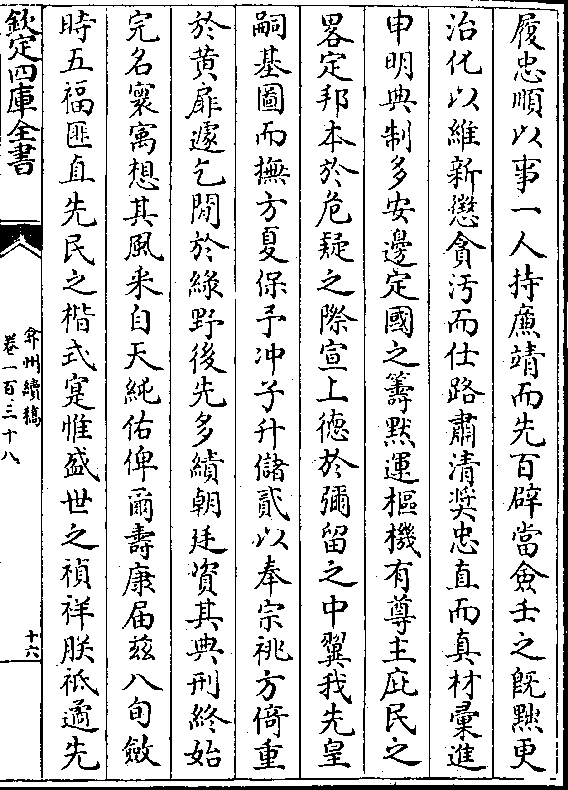 履忠順以事一人持廉靖而先百辟當僉壬之旣黜更
治化以維新懲貪汚而仕路肅清奬忠直而真材彙進
申明典制多安邊定國之籌默運樞機有尊主庇民之
畧定邦本於危疑之際宣上德於彌留之中翼我先皇
嗣基圖而撫方夏保予冲子升儲貳以奉宗祧方倚重
於黄扉遽乞閒於綠野後先多績朝廷資其典刑終始
完名寰㝢想其風采自天純佑俾爾壽康届兹八旬斂
時五福匪直先民之楷式寔惟盛世之禎祥朕祗遹先
欽定四庫全書
弇州續稿
卷一百三十八
十六